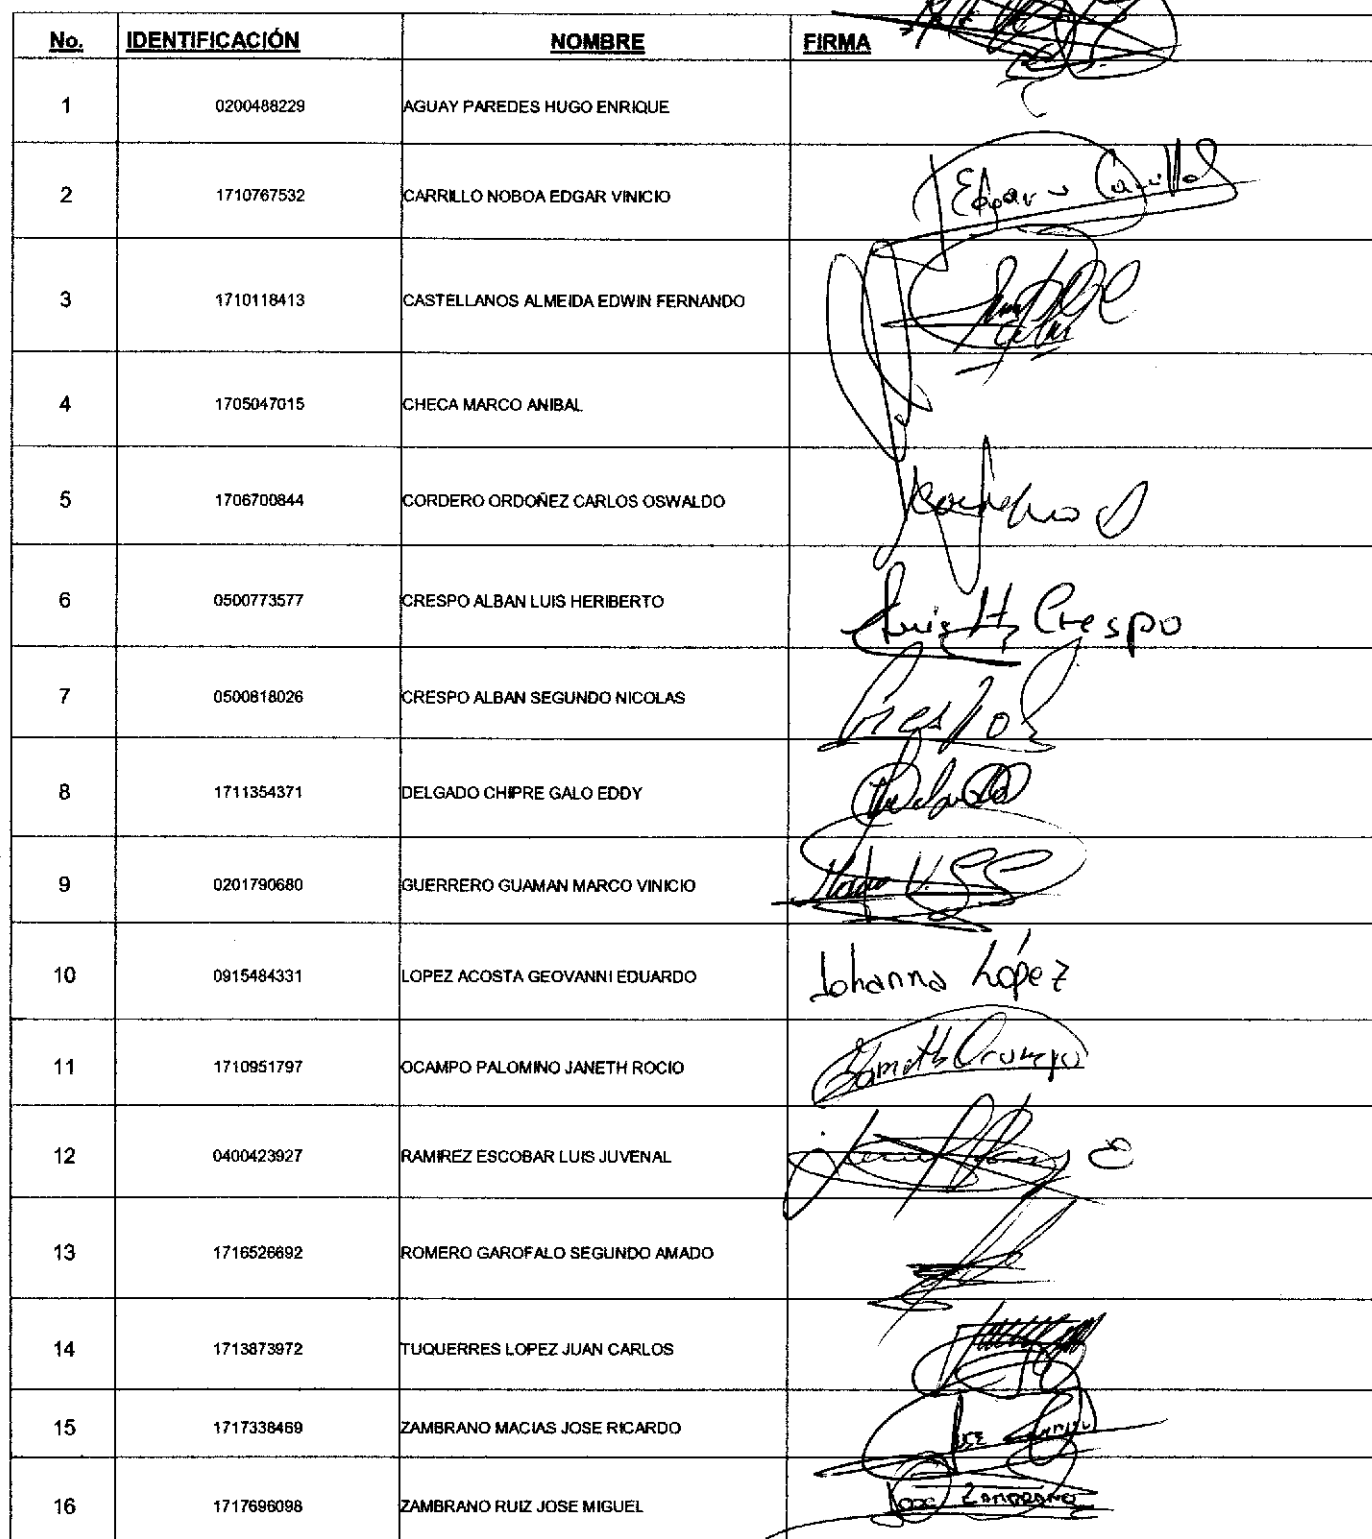 No. IDENTIFICACIÓN NOMBRE FIRMA
1 0200488229 AGUAY PAREDES HUGO ENRIQUE
2 1710767532 CARRILLO NOBOA EDGAR VINICIO Edgar V Carrillo
3 1710118413 CASTELLANOS ALMEIDA EDWIN FERNANDO
4 1705047015 CHECA MARCO ANIBAL
5 1706700844 CORDERO ORDOÑEZ CARLOS OSWALDO
6 0500773577 CRESPO ALBAN LUIS HERIBERTO Luis H. Crespo
7 0500818026 CRESPO ALBAN SEGUNDO NICOLAS Crespo
8 1711354371 DELGADO CHIPRE GALO EDDY
9 0201790680 GUERRERO GUAMAN MARCO VINICIO
10 0915484331 LOPEZ ACOSTA GEOVANNI EDUARDO Johanna López
11 1710951797 OCAMPO PALOMINO JANETH ROCIO Janeth Ocampo
12 0400423927 RAMIREZ ESCOBAR LUIS JUVENAL
13 1716526692 ROMERO GAROFALO SEGUNDO AMADO
14 1713873972 TUQUERRES LOPEZ JUAN CARLOS
15 1717338469 ZAMBRANO MACIAS JOSE RICARDO
16 1717696098 ZAMBRANO RUIZ JOSE MIGUEL Jose Zambrano